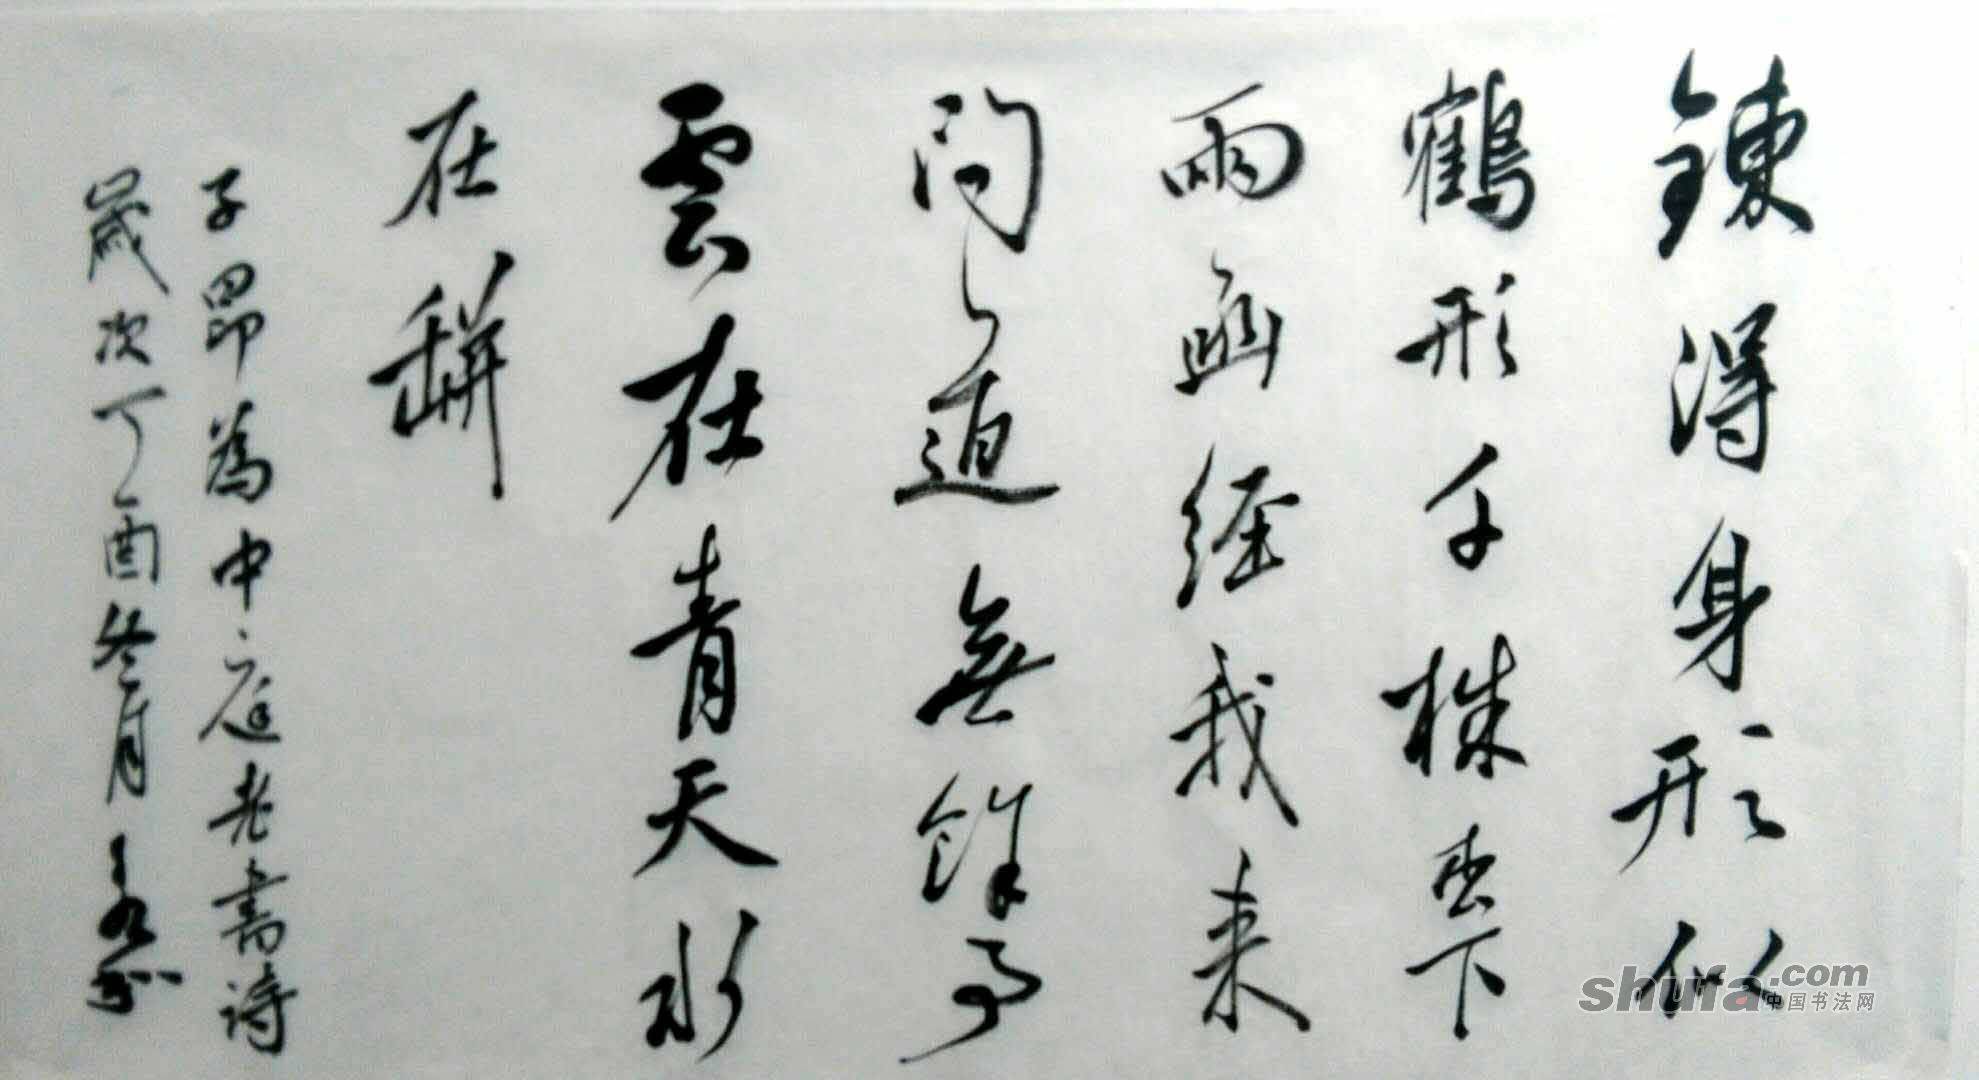 鍊得身形似
鶴形千株松下
兩函經我來
問道無餘事
雲在青天水
在缾
子昂為中庭老書詩
歲次丁酉冬月
shufa.com
中国书法网